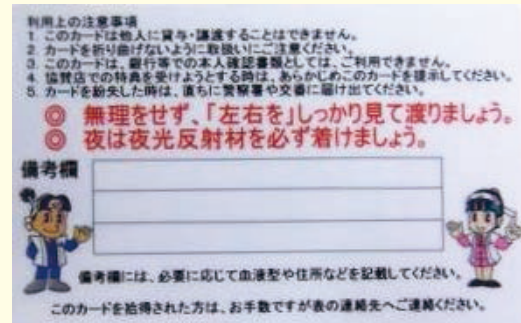 利用上の注意事項
1. このカードは他人に貸与・譲渡することはできません。
2. カードを折り曲げないように取扱いにご注意ください。
3. このカードは、銀行等での本人確認書類としては、ご利用できません。
4. 協賛店での特典を受けようとする時は、あらかじめこのカードを提示してください。
5. カードを紛失した時は、直ちに警察署や交番に届け出てください。
◎ 無理をせず、「左右を」しっかり見て渡りましょう。
◎ 夜は夜光反射材を必ず着けましょう。
備考欄
備考欄には、必要に応じて血液型や住所などを記載してください。
このカードを拾得された方は、お手数ですが表の連絡先へご連絡ください。